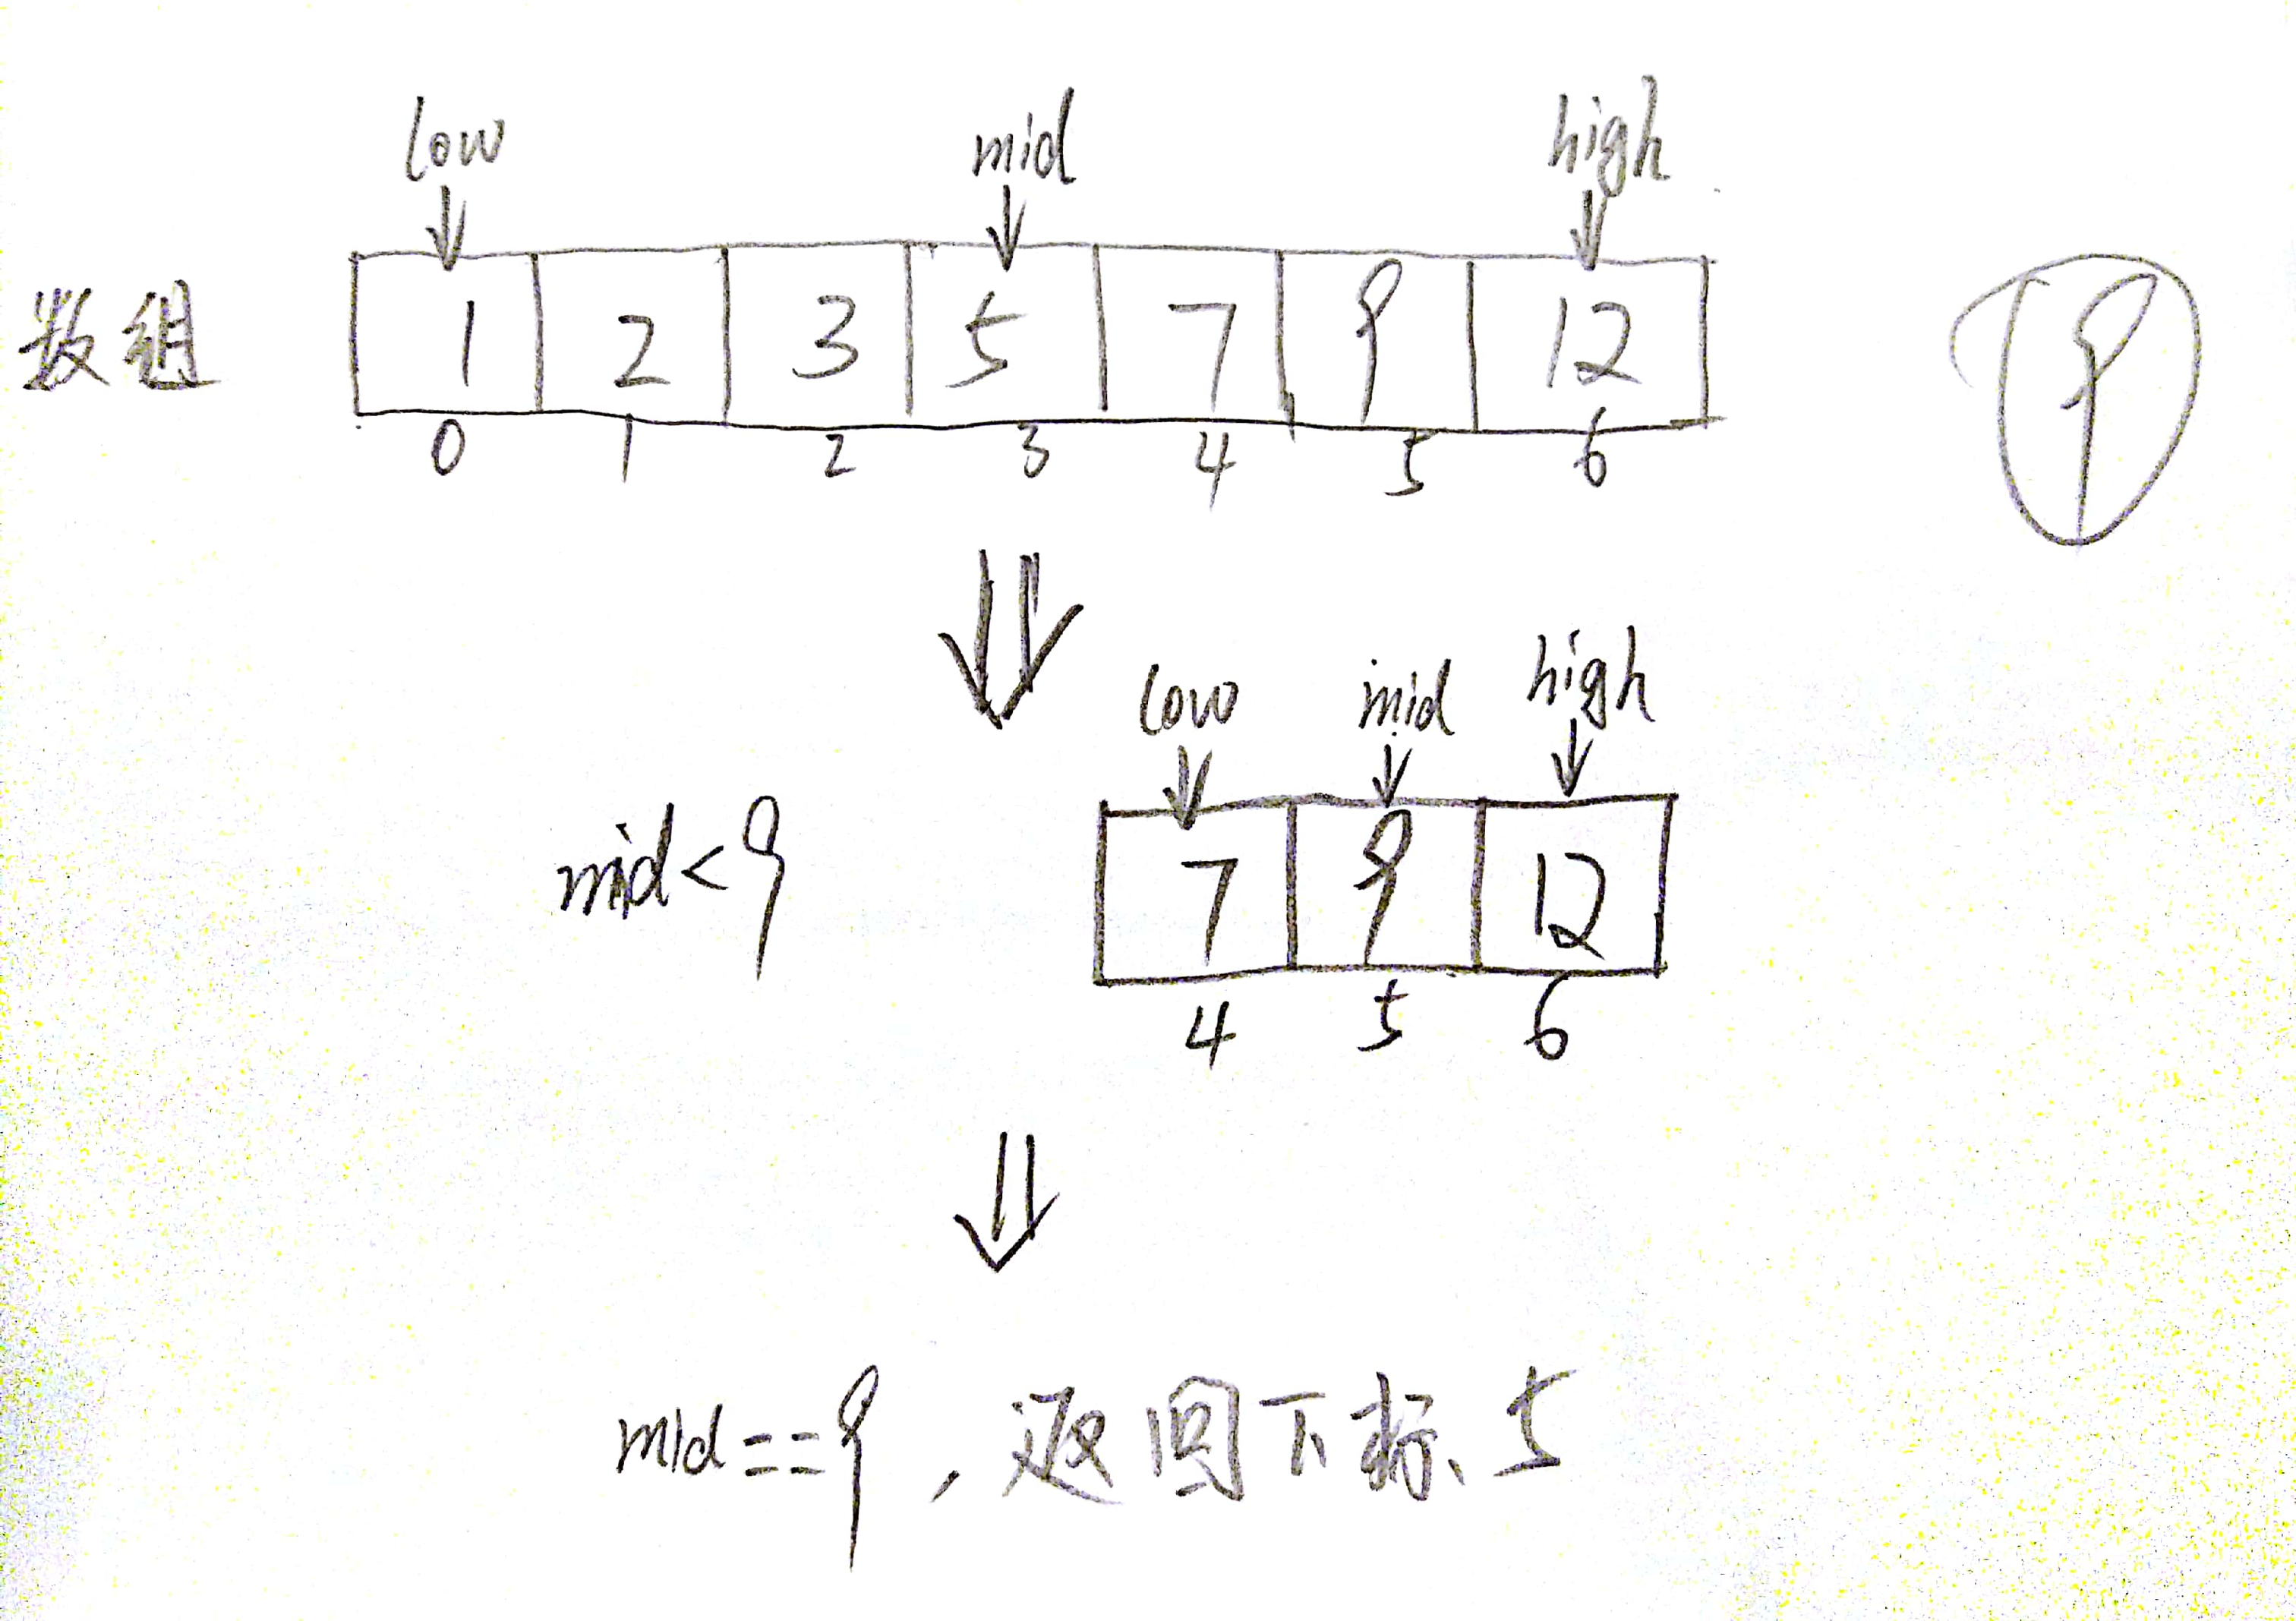 low mid high
数组 1 2 3 5 7 9 12 9
0 1 2 3 4 5 6
low mid high
mid<9 7 9 12
4 5 6
mid==9，返回下标、5